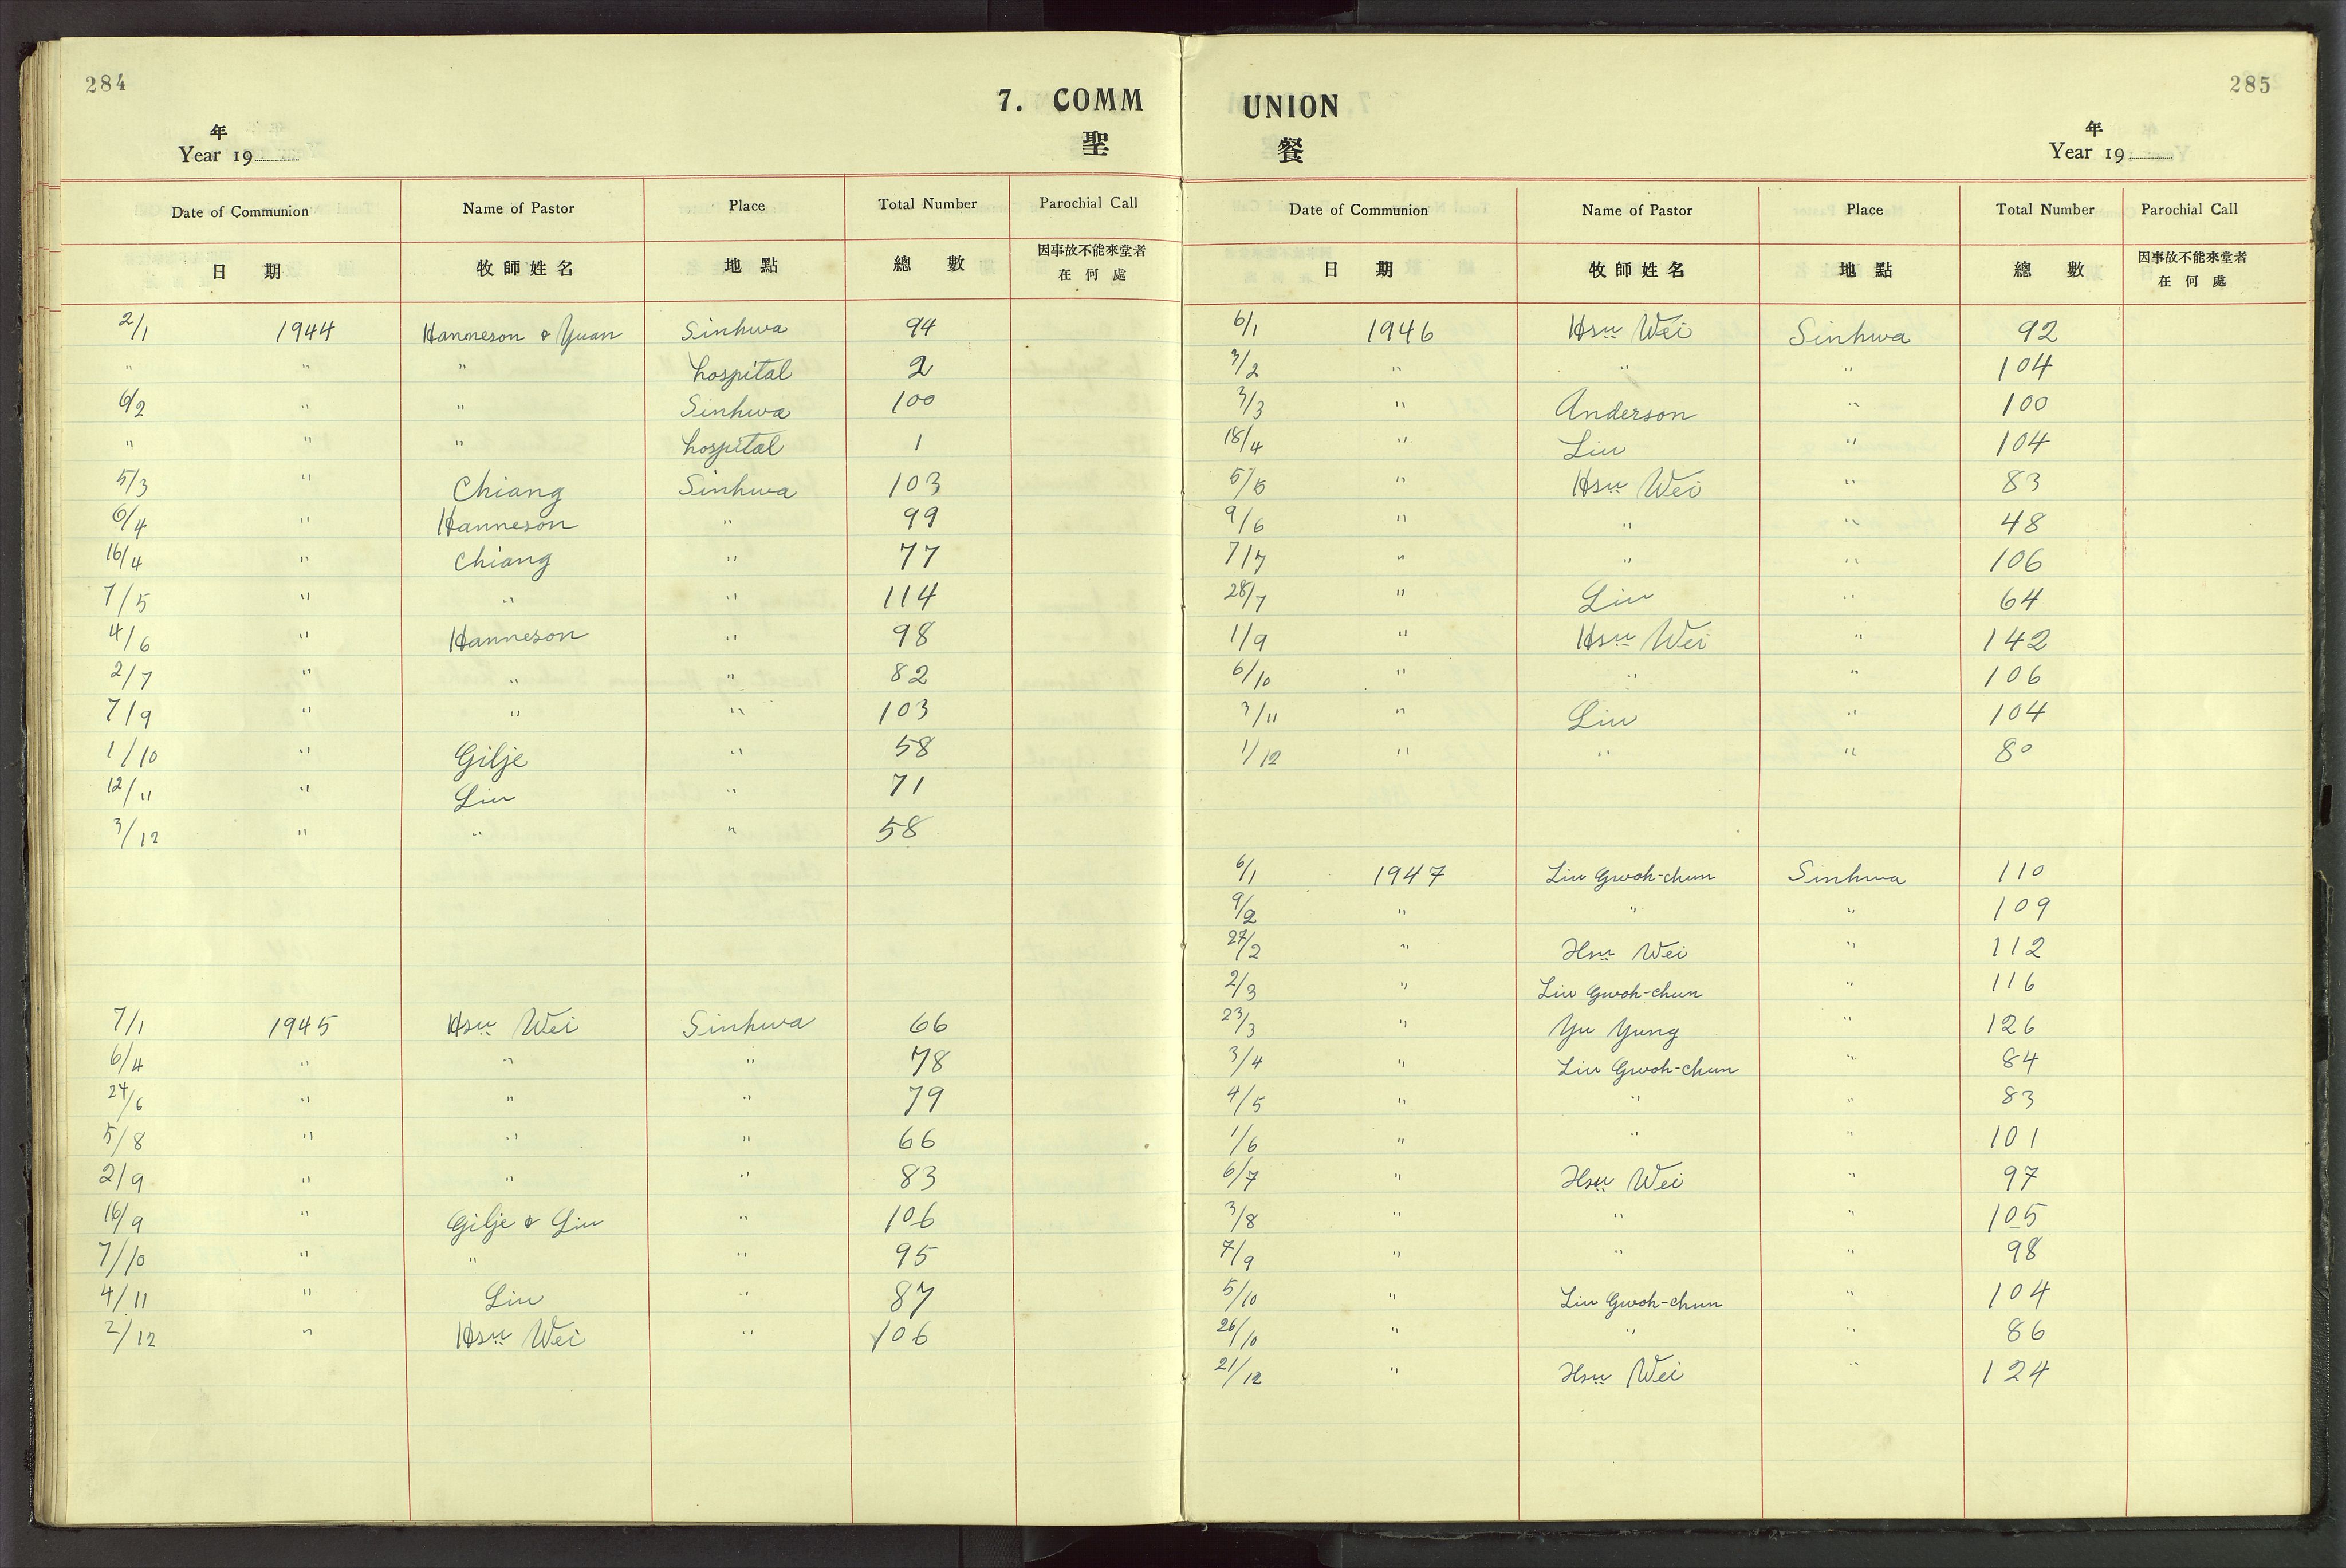 284
7. COMM
年
聖
Year 19
Date of Communion Name of Pastor Place Total Number Parochial Call
日 期 牧師姓名 地點 總數 因事故不能來堂者
在何處
2/1 1944 Hanneson & Yuan Sinhwa 94
" " " hospital 2
6/2 " " Sinhwa 100
" " " hospital 1
5/3 " Chiang Sinhwa 103
6/4 " Hanneson " 99
16/4 " Chiang " 77
7/5 " " " 114
4/6 " Hanneson " 98
2/7 " " " 82
7/9 " " " 103
1/10 " Gilje " 58
12/11 " Liu " 71
3/12 " " " 58
7/1 1945 Hsü Wei Sinhwa 66
6/4 " " " 78
24/6 " " " 79
5/8 " " " 66
2/9 " " " 83
16/9 " Gilje & Liu " 106
7/10 " " " 95
4/11 " Liu " 87
2/12 " Hsü Wei " 106
285
UNION
年
餐
Year 19
Date of Communion Name of Pastor Place Total Number Parochial Call
日 期 牧師姓名 地點 總數 因事故不能來堂者
在何處
6/1 1946 Hsü Wei Sinhwa 92
3/2 " " " 104
3/3 " Anderson " 100
18/4 " Liu " 104
5/5 " Hsü Wei " 83
9/6 " " " 48
7/7 " " " 106
28/7 " Liu " 64
1/9 " Hsü Wei " 142
6/10 " " " 106
3/11 " Liu " 104
1/12 " " " 80
6/1 1947 Liu Gwoh-chun Sinhwa 110
9/2 " " " 109
27/2 " Hsü Wei " 112
2/3 " Liu Gwoh-chun " 116
23/3 " Yu Yung " 126
3/4 " Liu Gwoh-chun " 84
4/5 " " " 83
1/6 " " " 101
6/7 " Hsü Wei " 97
3/8 " " " 105
7/9 " " " 98
5/10 " Liu Gwoh-chun " 104
26/10 " " " 86
21/12 " Hsü Wei " 124